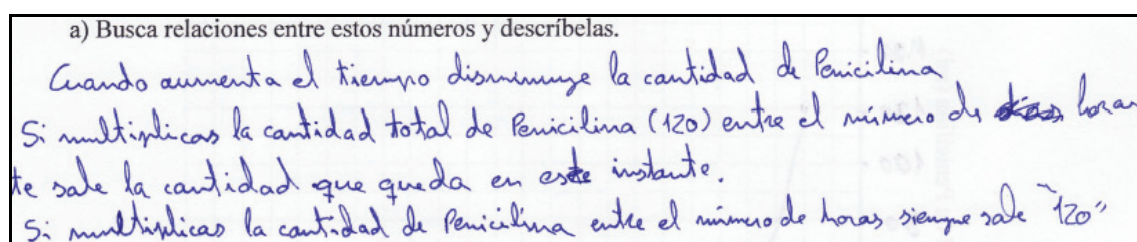 a) Busca relaciones entre estos números y descríbelas.
Cuando aumenta el tiempo disminuye la cantidad de Penicilina
Si multiplicas la cantidad total de Penicilina (120) entre el número de horas
te sale la cantidad que queda en este instante.
Si multiplicas la cantidad de Penicilina entre el número de horas siempre sale "120"